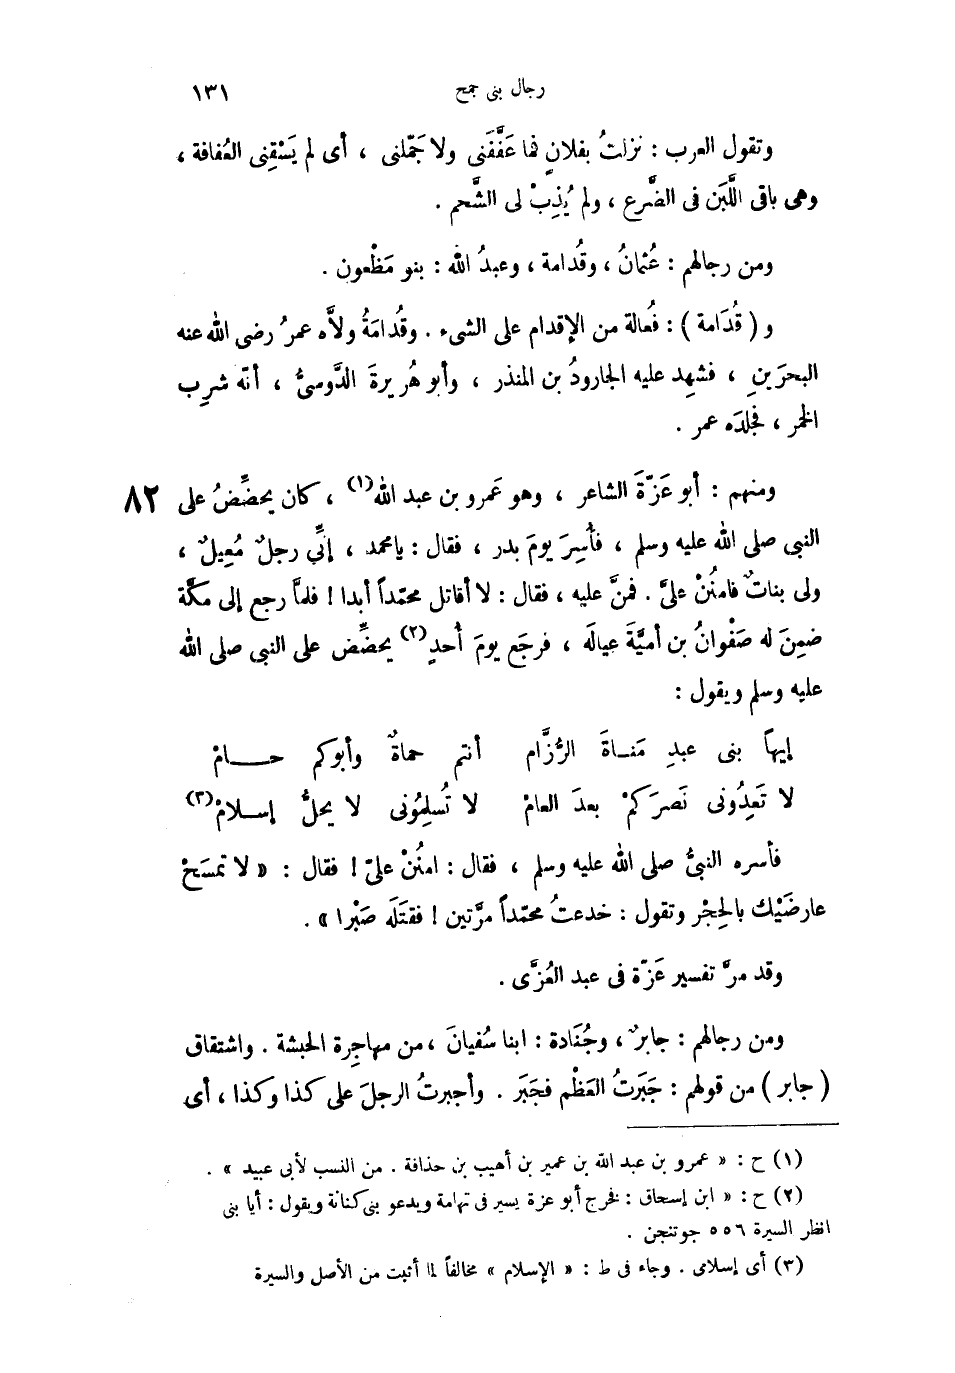 رجال بنى جمح ١٣١
وتقول العرب : نزلتُ بفلانٍ فما عَفَّفَنى ولا جَمّلنى ، أى لم يَسْقِنى العُفافة ،
وهى باقى اللَّبَن فى الضَّرع ، ولم يُذِبْ لى الشَّحم .
ومن رجالهم : عُثمانُ ، وقُدامة ، وعبدُ الله : بنو مَظْعون .
و ( قُدَامة ) : فُعالة من الإقدام على الشىء . وقُدامَةُ ولاَّه عمرُ رضى الله عنه
البحرَينِ ، فشهِد عليه الجارودُ بن المنذر ، وأبو هُريرةَ الدَّوسىُّ ، أنّه شرِب
الخمر ، فجلدَه عمر .
ومنهم : أبو عَزّةَ الشاعر ، وهو عَمرو بن عبد الله(١) ، كان يحضِّضُ على ٨٢
النبى صلى الله عليه وسلم ، فأُسِرَ يومَ بدر ، فقال : يامحمد ، إنِّى رجلٌ مُعِيلٌ ،
ولى بناتٌ فامنُنْ علىَّ . فمنَّ عليه ، فقال : لا أقاتل محمّداً أبدا ! فلمَّا رجع إلى مكّة
ضمِنَ له صَفْوانُ بن أميَّةَ عيالَه ، فرجَع يومَ أُحدٍ(٢) يحضِّض على النبى صلى الله
عليه وسلم ويقول :
إيهاً بنى عبدِ مَنـاةَ الرُّزَّام أنتم حماةٌ وأبوكم حـــامْ
لا تَعِدُونى نَصرَكمْ بعدَ العامْ لا تُسلِمُونى لا يحلُّ إسـلامْ(٣)
فأسره النبىُّ صلى الله عليه وسلم ، فقال : امنُنْ علىّ ! فقال : « لا تمسَحْ
عارضَيْك بالحِجْر وتقول : خدعتُ محمّداً مرَّتين ! فقتَلَه صَبْرا » .
وقد مرَّ تفسير عَزّة فى عبد العُزَّى .
ومن رجالهم : جابرٌ ، وجُنَادة : ابنا سُفيانَ ، من مهاجِرة الحبشة . واشتقاق
( جابر ) من قولهم : جَبَرتُ العَظْم فجَبَر . وأجبرتُ الرجلَ على كذا وكذا ، أى
(١) ح : « عمرو بن عبد الله بن عمير بن أهيب بن حذافة . من النسب لأبى عبيد » .
(٢) ح : « ابن إسحاق : فخرج أبو عزة يسير فى تهامة ويدعو بنى كنانة ويقول : أيا بنى
انظر السيرة ٥٥٦ جوتنجن .
(٣) أى إسلامى . وجاء فى ط : « الإسلام » مخالفاً لما أثبت من الأصل والسيرة